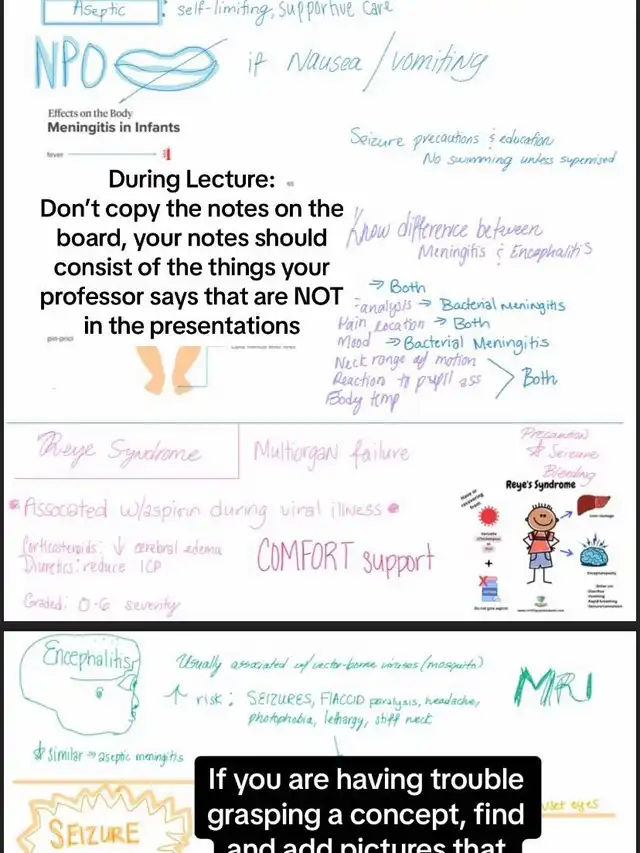 Aseptic : self-limiting, supportive care
NPO if Nausea/vomiting
Effects on the Body
Meningitis in Infants
fever
Seizure precautions & education
No swimming unless supervised
During Lecture:
Don’t copy the notes on the
board, your notes should
consist of the things your
professor says that are NOT
in the presentations
pin-prick
Know difference between
Meningitis & Encephalitis
→ Both
-analysis → Bacterial Meningitis
Pain Location → Both
Mood → Bacterial Meningitis
Neck range of motion
Reaction to pupil ass
Body temp
Both
Reye Syndrome
Multiorgan failure
Precaution
Seizure
Bleeding
Associated w/aspirin during viral illness
Corticosteroids: ↓ cerebral edema
Diuretics: reduce ICP
COMFORT support
Graded: 0-6 severity
Reye's Syndrome
Have or
recovering
from
+
Do not give aspirin
Liver damage
Encephalopathy
Encephalitis
Usually associated w/ vector-borne viruses (mosquito)
↑ risk: SEIZURES, FlACCID paralysis, headache,
photophobia, lethargy, stiff neck
MRI
Similar → aseptic meningitis
If you are having trouble
grasping a concept, find
and add pictures that
SEIZURE
eyes